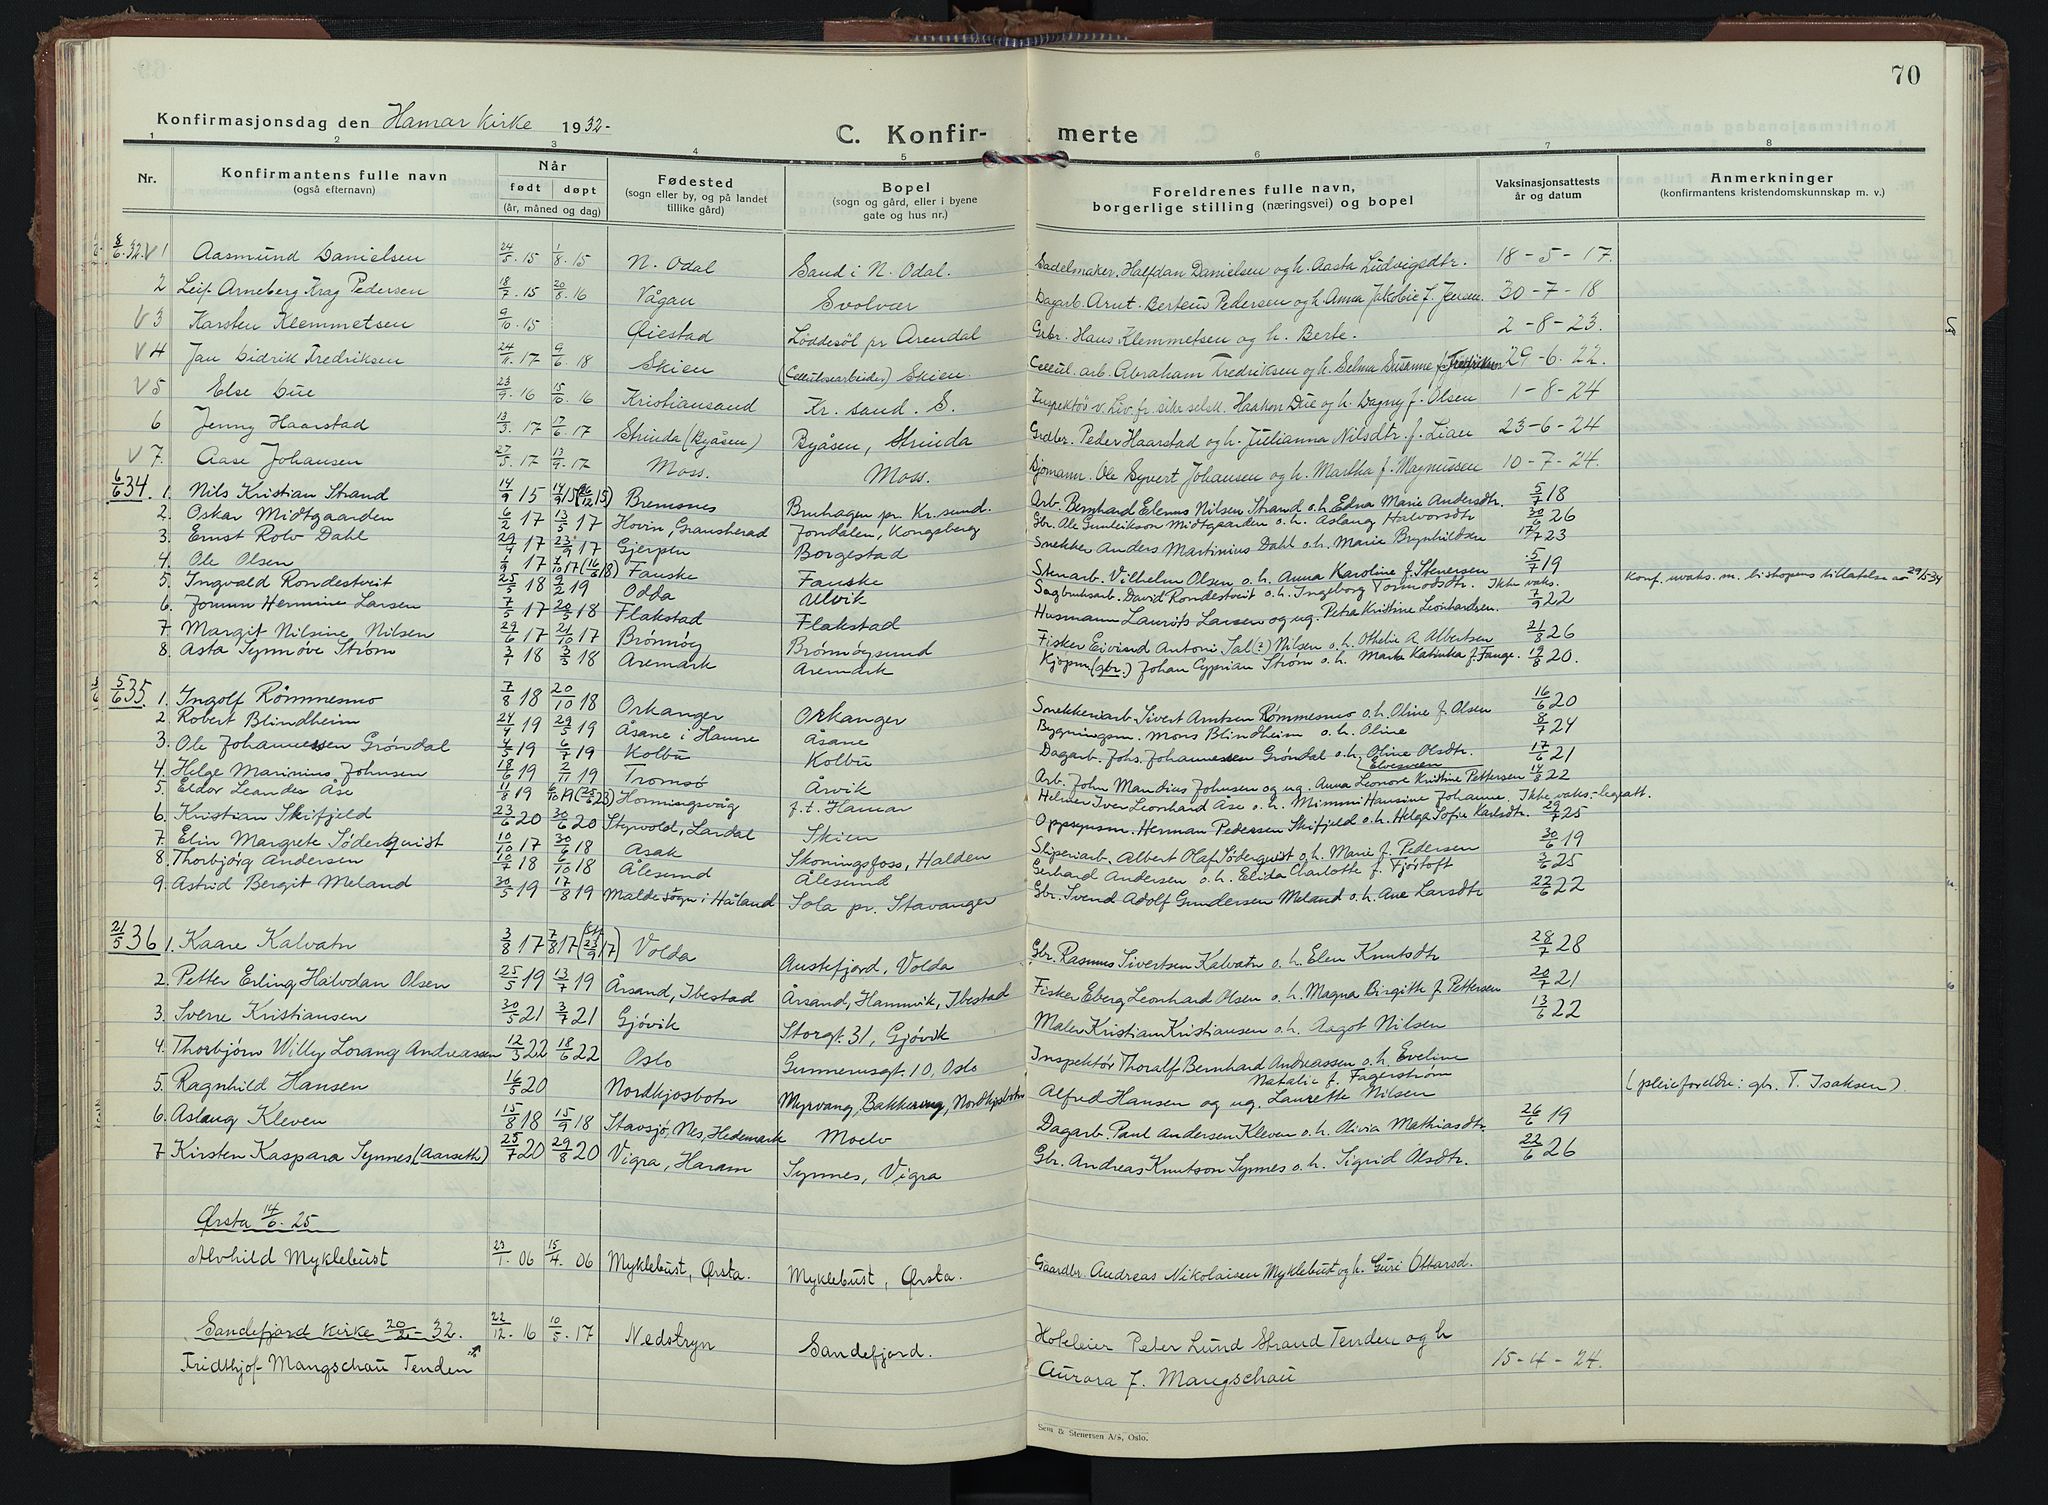 70
Konfirmasjonsdag den Hamar kirke 1932-
C. Konfir- merte
1 2 3 4 5 6 7 8
Nr. Konfirmantens fulle navn (også efternavn) Når født døpt (år, måned og dag) Fødested (sogn eller by, og på landet tillike gård) Bopel (sogn og gård, eller i byene gate og hus nr.) Foreldrenes fulle navn, borgerlige stilling (næringsvei) og bopel Vaksinasjonsattests år og datum Anmerkninger (konfirmantens kristendomskunnskap m. v.)
5/6.32. V 1 Aasmund Danielsen 24/5.15 1/8.15 N. Odal Sand i N. Odal. Sadelmaker. Halfdan Danielsen og h. Aasta Ludvigsdtr. 18-5-17.
2 Leif Arneberg Krag Pedersen 18/7.15 20/8.16 Vågan Svolvær Dagarb. Arnt. Berteus Pedersen og h. Anna Jakobie f. Jensen 30-7-18
V 3 Karsten Klemmetsen 9/10.15 Øiestad Løddesøl pr Arendal Grbr. Hans Klemmetsen og h. Berte. 2-8-23.
V 4 Jan Didrik Fredriksen 24/11.17 9/6.18 Skien (Cellulosearbeider) Skien. Cellul. arb. Abraham Fredriksen og h. Selma Susanne f. Fredriksen 29-6.22.
V 5 Else Due 23/9.16 15/10.16 Kristiansand Kr. sand. S. Inspektør v. Liv.fr. sikr. selsk. Haakon Due og h. Dagny f. Olsen 1-8-24
6 Jenny Haarstad 13/3.17 17/6.17 Strinda (Byåsen) Byåsen, Strinda Grdbr. Peder Haarstad og h. Julianna Nilsdtr. f. Lian 23-6-24
V 7. Aase Johansen 27/5.17 13/9.17 Moss. Moss. Sjømann. Ole Syvert Johansen og h. Martha f. Magnussen 10-7-24.
6/6 34. 1. Nils Kristian Strand 14/9 15 14/9 15 (26/12 15) Bremsnes Bruhagen pr. Kr.sund. Arb. Bernhard Elenus Nilsen Strand o.h. Edna Marie Andersdtr. 5/7 18
2. Oskar Midtgaarden 6/2 17 13/5 17 Hovin, Gransherad Jondalen, Kongsberg Gbr. Ole Gunleikson Midtgaarden o.h. Aslaug Halvorsdtr 30/6 26
3. Ernst Rolv Dahl 29/4 17 23/9 17 Gjerpen Borgestad Snekker Anders Martinius Dahl o.h. Marie Brynhildsen 17/7 23
4. Ole Olsen 1/9 17 7/10 17 (16/6 18) Fauske Fauske Stenarb. Vilhelm Olsen o.h. Anna Karoline f. Stenersen 5/7 19
5. Ingvald Rondestveit 25/5 18 9/2 19 Odda Ulvik Sagbruksarb. David Rondestveit o.h. Ingeborg Tormodsdtr. Ikke vaks. Konf. uvaks. m. bispopens tillatelse av 29/5 34
6. Jorunn Hermine Larsen 7/5 17 20/5 18 Flakstad Flakstad Husmann Laurits Larsen og ug. Petra Kristine Leonhardsen. 7/9 22
7. Margit Nilsine Nilsen 29/6 17 21/10 17 Brønnøy Brønnøysund Fisker Eivind Antoni Sal(?) Nilsen o.h. Othelie A. Albertsen 21/8 26
8. Asta Synnøve Strøm 3/1 18 3/3 18 Aremark Aremark Kjøpm. (gbr.) Johan Cyprian Strøm o.h. Marte Katinka f. Fange. 19/8 20.
5/6 35. 1. Ingolf Rømmesmo 7/8 18 20/10 18 Orkanger Orkanger Snekkeriarb. Sivert Arntsen Rømmesmo o.h. Oline f. Olsen 16/6 20
2. Robert Blindheim 24/4 19 29/5 19 Åsane i Hamre Åsane Bygningsm. Mons Blindheim o.h. Oline 8/7 24
3. Ole Johannessen Grøndal 4/5 19 6/7 19 Kolbu Kolbu Dagarb. Johs. Johannessen Grøndal o.h. Oline Olsdtr. 17/6 21
4. Helge Marinius Johnsen 18/6 19 2/11 19 Tromsø Årvik Arb. John Mandius Johnsen og ug. Anna Leonore Kristine Pettersen (Elvesveen 14/8 22
5. Eldor Leander Åse 11/8 19 6/10 19 (25/6 23) Honningsvåg f.t. Hamar Helmer Iver Leonhard Åse o.h. Mimmi Hansine Johanne. Ikke vaks.-legeatt.
6. Kristian Skifjeld 23/6 20 30/6 20 Styrvold, Lardal Skien Oppsynsm. Herman Pedersen Skifjeld o.h. Helga Sofie Karlsdtr. 29/7 25
7. Elin Margrete Søderquist 10/10 17 30/6 18 Asak Skoningsfoss, Halden Sliperiarb. Albert Olaf Søderquist o.h. Marie f. Pedersen 30/6 19
8. Thorbjørg Andersen 10/7 18 6/10 18 Ålesund Ålesund Gerhard Andersen o.h. Elida Charlotte f. Fjørtoft 3/6 25
9. Astrid Bergit Meland 30/5 19 17/8 19 Malde sogn i Håland Sola pr. Stavanger Gbr. Svend Adolf Gundersen Meland o.h. Ane Larsdtr 22/6 22
21/5 36 1. Kaare Kalvatn 3/8 17 7/8 17 (st. 23/9 17) Volda Austefjord, Volda Gbr. Rasmus Sivertsen Kalvatn o.h. Elen Knutsdtr 28/7 28
2. Petter Erling Halvdan Olsen 25/5 19 13/7 19 Årsand, Ibestad Årsand, Hamnvik, Ibestad Fisker Eberg Leonhard Olsen o.h. Magna Birgitte f. Pettersen 20/7 21
3. Sverre Kristiansen 30/5 21 3/7 21 Gjøvik Storgt. 31, Gjøvik Maler Kristian Kristiansen o.h. Aagot Nilsen 13/6 22
4. Thorbjørn Willy Lorang Andreassen 12/3 22 18/6 22 Oslo Gunnerusgt. 10, Oslo Inspektør Thoralf Bernhard Andreassen o.h. Eveline Natalie f. Fagerstrøm
5. Ragnhild Hansen 16/5 20 Nordkjosbotn Myrvang, Bakkereng, Nordkjosbotn Alfred Hansen og ug. Laurette Nilsen (pleieforeldre: gbr. T. Isaksen).
6. Aslaug Kleven 15/8 18 15/9 18 Stavsjø, Nes, Hedemark Moelv Dagarb. Paul Andersen Kleven o.h. Alivia Mathiasdtr 26/6 19
7 Kirsten Kaspara Synnes (Aarseth) 25/7 20 29/8 20 Vigra, Haram Synnes, Vigra Gbr. Andreas Knutson Synnes o.h. Sigrid Olsdtr. 22/6 26
Ørsta 14/6.25
Alvhild Myklebust 23/1.06 15/4.06 Myklebust, Ørsta. Myklebust, Ørsta. Gaardbr. Andreas Nikolaisen Myklebust og h. Guri Ottarsd.
Sandefjord kirke 20/2-32.
Fridthjof Mangschau Tenden 22/12.16 10/5.17 Nedstryn Sandefjord. Hoteleier Peter Lund Strand Tenden og h Aurora f. Mangschau 15-4-24.
Sem & Stenersen A/S, Oslo.